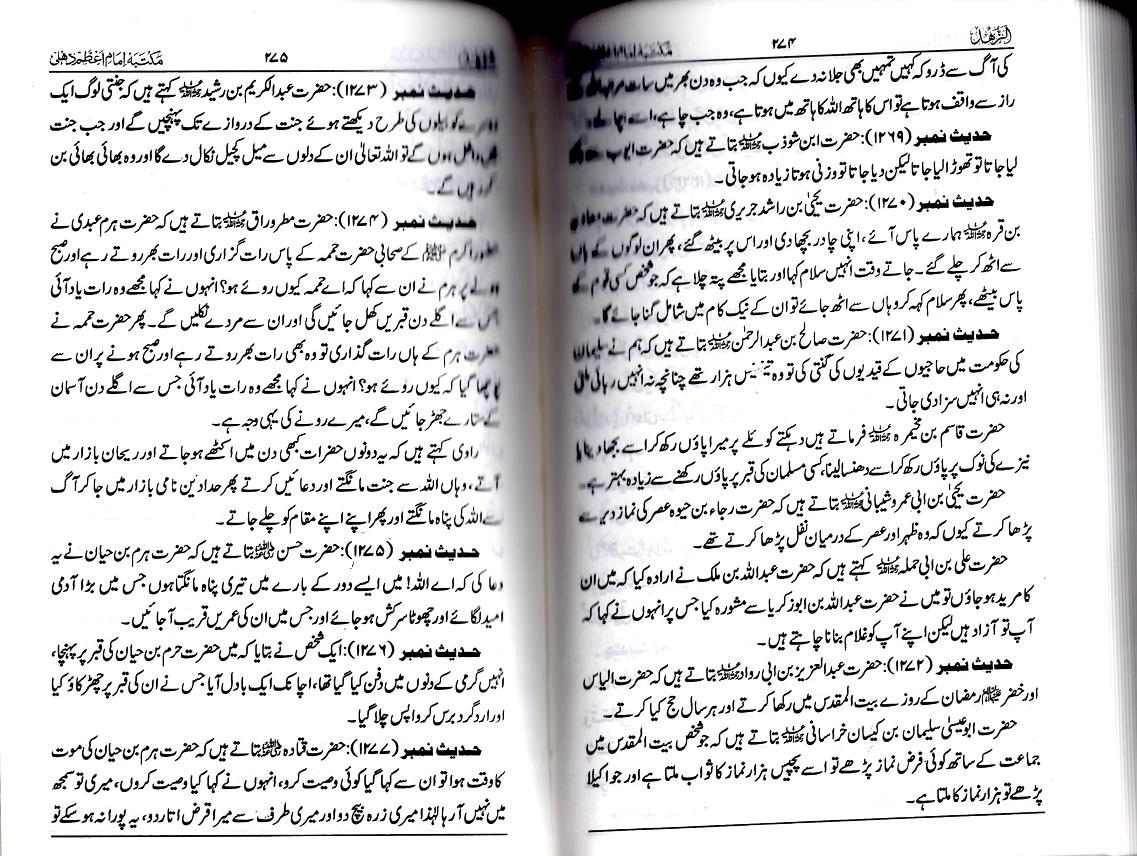 الزھد
۲۷۴
مکتبہ امام اعظم
کی آگ سے ڈرو کہ کہیں تمہیں بھی جلا نہ دے کیوں کہ جب وہ دن بھر میں سات مرتبہ اللہ کے
راز سے واقف ہوتا ہے تو اس کا ہاتھ اللہ کا ہاتھ میں ہوتا ہے، وہ جب چاہے، اسے
حدیث نمبر (۱۲۶۹): حضرت ابن شوذب رحمۃ اللہ علیہ بتاتے ہیں کہ حضرت ایوب
لیا جاتا تو تھوڑا لیا جاتا لیکن دیا جاتا تو وزنی ہوتا زیادہ ہو جاتی۔
حدیث نمبر (۱۲۷۰): حضرت یحییٰ بن راشد جریری رحمۃ اللہ علیہ بتاتے ہیں کہ حضرت معاویہ
بن قرہ رحمۃ اللہ علیہ ہمارے پاس آئے، اپنی چادر بچھا دی اور اس پر بیٹھ گئے، پھر ان لوگوں کے ہاں
سے اٹھ کر چلے گئے۔ جاتے وقت انہیں سلام کہا اور بتایا مجھے پتہ چلا ہے کہ جو شخص کسی قوم کے
پاس بیٹھے، پھر سلام کہہ کر وہاں سے اٹھ جائے تو ان کے نیک کام میں شامل گنا جائے گا۔
حدیث نمبر (۱۲۷۱): حضرت صالح بن عبدالرحمٰن رحمۃ اللہ علیہ بتاتے ہیں کہ ہم نے سلیمان
کی حکومت میں حاجیوں کے قیدیوں کی گنتی کی تو وہ تینتیس ہزار تھے چنانچہ نہ انہیں رہائی ملی
اور نہ ہی انہیں سزا دی جاتی۔
حضرت قاسم بن مخیمرہ رحمۃ اللہ علیہ فرماتے ہیں دہکتے کوئلے پر میرا پاؤں رکھ کر اسے بجھا دینا یا
نیزے کی نوک پر پاؤں رکھ کر اسے دھنسا لینا، کسی مسلمان کی قبر پر پاؤں رکھنے سے زیادہ بہتر ہے۔
حضرت یحییٰ بن ابی عمرو شیبانی رحمۃ اللہ علیہ بتاتے ہیں کہ حضرت رجاء بن حیوہ عصر کی نماز دیر سے
پڑھا کرتے کیوں کہ وہ ظہر اور عصر کے درمیان نفل پڑھا کرتے تھے۔
حضرت علی بن ابی حملہ رحمۃ اللہ علیہ کہتے ہیں کہ حضرت عبداللہ بن ملک نے ارادہ کیا کہ میں ان
کا مرید ہو جاؤں تو میں نے حضرت عبداللہ بن ابو زکریا سے مشورہ کیا جس پر انہوں نے کہا کہ
آپ تو آزاد ہیں لیکن اپنے آپ کو غلام بنانا چاہتے ہیں۔
حدیث نمبر (۱۲۷۲): حضرت عبدالعزیز بن ابی رواد رحمۃ اللہ علیہ بتاتے ہیں کہ حضرت الیاس
اور خضر علیہ السلام رمضان کے روزے بیت المقدس میں رکھا کرتے اور ہر سال حج کیا کرتے۔
حضرت ابو عیسیٰ سلیمان بن کیسان خراسانی رحمۃ اللہ علیہ بتاتے ہیں کہ جو شخص بیت المقدس میں
جماعت کے ساتھ کوئی فرض نماز پڑھے تو اسے پچیس ہزار نماز کا ثواب ملتا ہے اور جو اکیلا
پڑھے تو ہزار نماز کا ملتا ہے۔
۲۷۵
مکتبہ امام اعظم دہلی
حدیث نمبر (۱۲۷۳): حضرت عبدالکریم بن رشید رحمۃ اللہ علیہ کہتے ہیں کہ جنتی لوگ ایک
دوسرے کو بیلوں کی طرح دیکھتے ہوئے جنت کے دروازے تک پہنچیں گے اور جب جنت
میں داخل ہوں گے تو اللہ تعالیٰ ان کے دلوں سے میل کچیل نکال دے گا اور وہ بھائی بھائی بن
کر رہیں گے۔
حدیث نمبر (۱۲۷۴): حضرت مطر وراق رحمۃ اللہ علیہ بتاتے ہیں کہ حضرت ہرم عبدی نے
حضور اکرم ﷺ کے صحابی حضرت حممہ کے پاس رات گزاری اور رات بھر روتے رہے اور صبح
ہونے پر ہرم نے ان سے کہا کہ اے حممہ کیوں روئے ہو؟ انہوں نے کہا مجھے وہ رات یاد آئی
جس سے اگلے دن قبریں کھل جائیں گی اور ان سے مردے نکلیں گے۔ پھر حضرت حممہ نے
حضرت ہرم کے ہاں رات گذاری تو وہ بھی رات بھر روتے رہے اور صبح ہونے پر ان سے
پوچھا گیا کہ کیوں روئے ہو؟ انہوں نے کہا مجھے وہ رات یاد آئی جس سے اگلے دن آسمان
کے ستارے جھڑ جائیں گے، میرے رونے کی یہی وجہ ہے۔
راوی کہتے ہیں کہ یہ دونوں حضرات کبھی دن میں اکٹھے ہو جاتے اور ریحان بازار میں
آتے، وہاں اللہ سے جنت مانگتے اور دعائیں کرتے پھر حدادین نامی بازار میں جا کر آگ
سے اللہ کی پناہ مانگتے اور پھر اپنے اپنے مقام کو چلے جاتے۔
حدیث نمبر (۱۲۷۵): حضرت حسن رضی اللہ عنہ بتاتے ہیں کہ حضرت ہرم بن حیان نے یہ
دعا کی کہ اے اللہ! میں ایسے دور کے بارے میں تیری پناہ مانگتا ہوں جس میں بڑا آدمی
امید لگائے اور چھوٹا سرکش ہو جائے اور جس میں ان کی عمریں قریب آ جائیں۔
حدیث نمبر (۱۲۷۶): ایک شخص نے بتایا کہ میں حضرت حرم بن حیان کی قبر پر پہنچا،
انہیں گرمی کے دنوں میں دفن کیا گیا تھا، اچانک ایک بادل آیا جس نے ان کی قبر پر چھڑکاؤ کیا
اور اردگرد برس کر واپس چلا گیا۔
حدیث نمبر (۱۲۷۷): حضرت قتادہ رضی اللہ عنہ بتاتے ہیں کہ حضرت ہرم بن حیان کی موت
کا وقت ہوا تو ان سے کہا گیا کوئی وصیت کرو، انہوں نے کہا کیا وصیت کروں، میری تو سمجھ
میں نہیں آ رہا لہٰذا میری زرہ بیچ دو اور میری طرف سے میرا قرض اتار دو، یہ پورا نہ ہو سکے تو